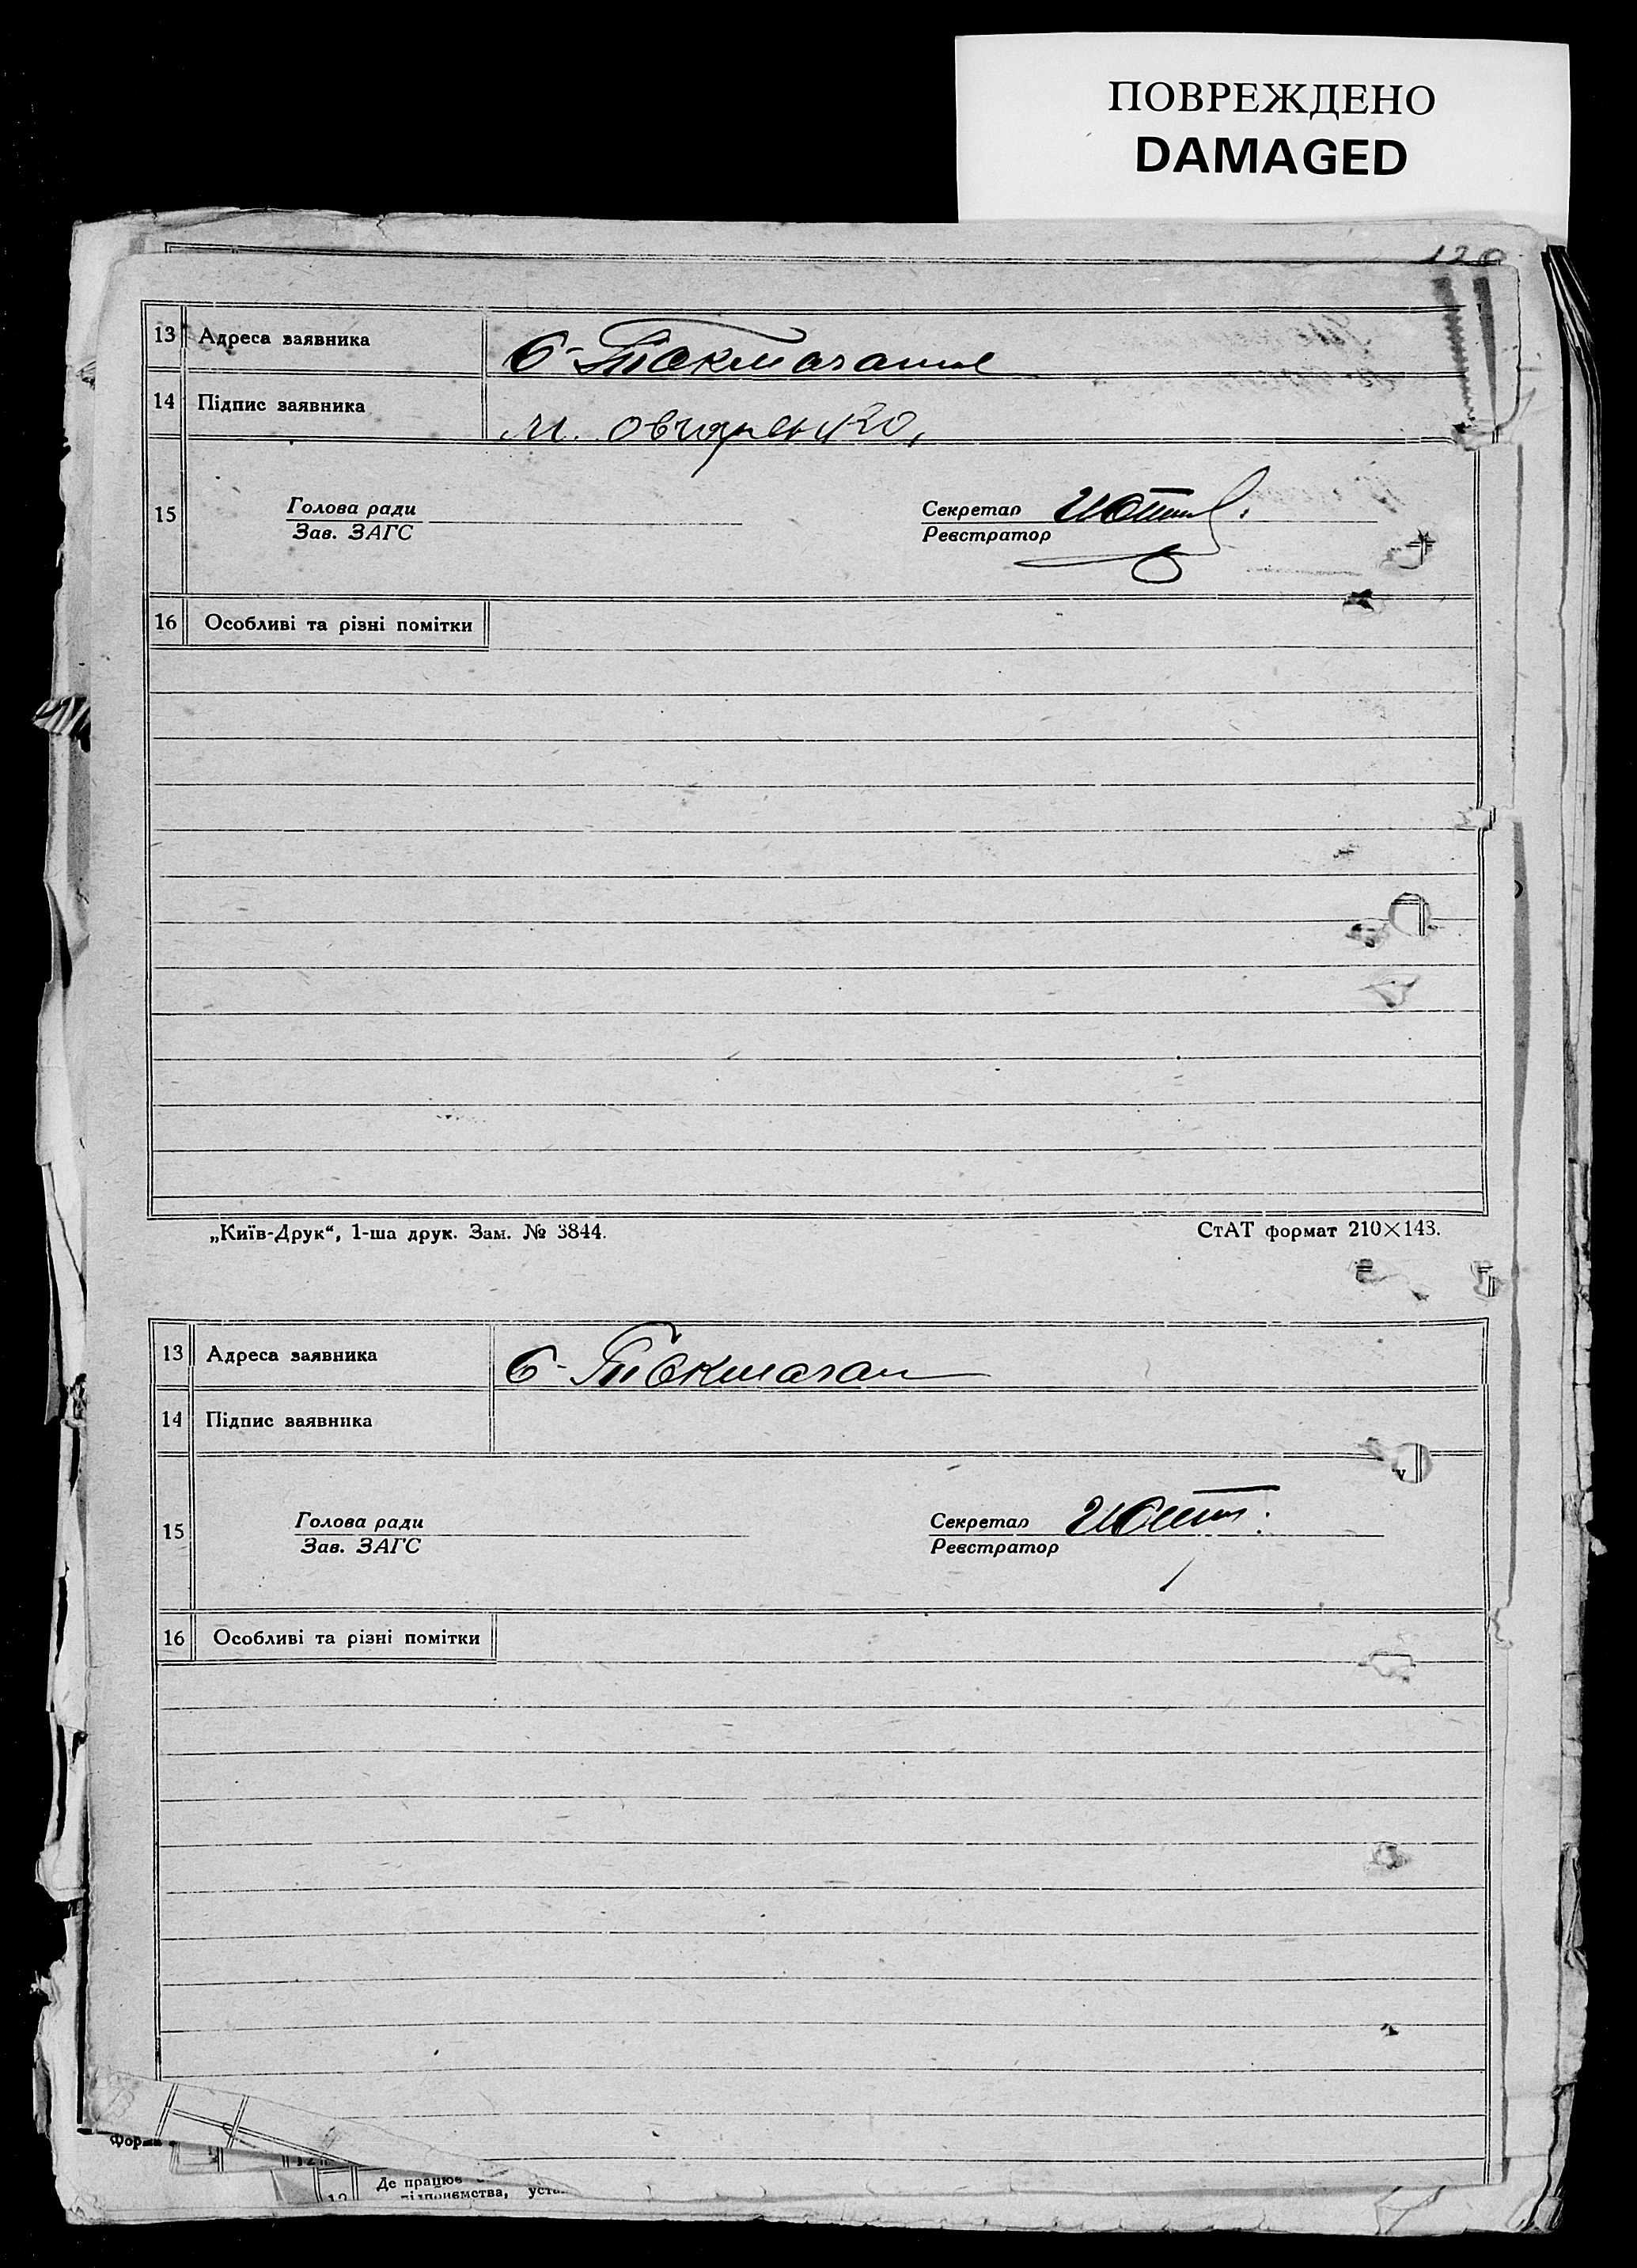 ПОВРЕЖДЕНО
DAMAGED
120
13 Адреса заявника
14 Підпис заявника М. Овчаренко,
15 Голова ради Секретар
Зав. ЗАГС Реєстратор
16 Особливі та різні помітки
„Київ-Друк“, 1-ша друк. Зам. № 3844. СтАТ формат 210×143.
13 Адреса заявника
14 Підпис заявника
15 Голова ради Секретар
Зав. ЗАГС Реєстратор
16 Особливі та різні помітки
Форма
12
12 Де працює
підприємства,